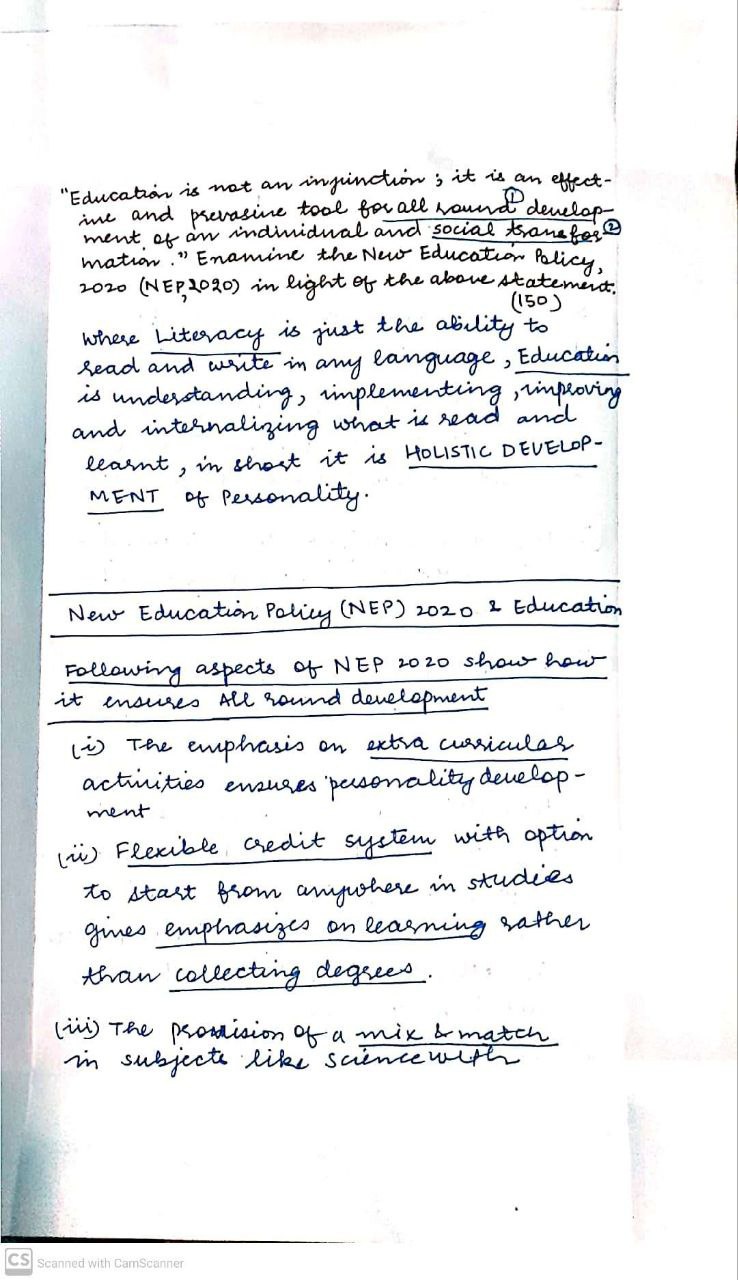 "Education is not an injunction ; it is an effect-
ive and prevasive tool for all round ① develop-
ment of an individual and social transfor ②
mation ." Examine the New Education Policy,
2020 (NEP, 2020) in light of the above statement.
(150)
Where Literacy is just the ability to
read and write in any language , Education
is understanding, implementing , improving
and internalizing what is read and
learnt , in short it is HOLISTIC DEVELOP-
MENT of Personality.
New Education Policy (NEP) 2020 & Education
Following aspects of NEP 2020 show how
it ensures All round development
(i) The emphasis on extra curricular
activities ensures personality develop-
ment
(ii) Flexible credit system with option
to start from anywhere in studies
gives emphasizes on learning rather
than collecting degrees .
(iii) The provision of a mix & match
in subjects like science with
CS Scanned with CamScanner